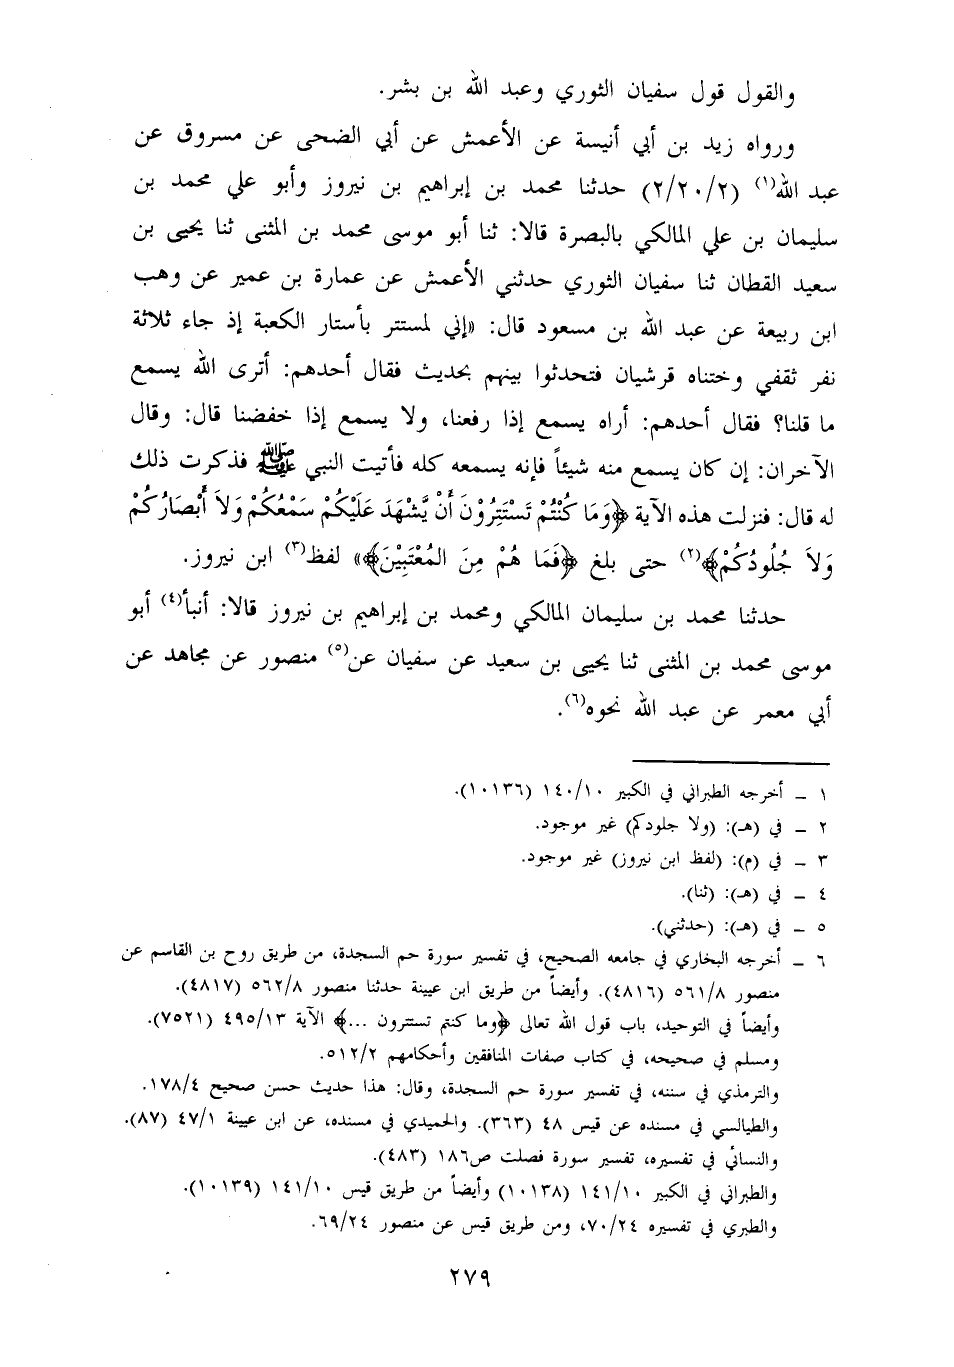 والقول قول سفيان الثوري وعبد الله بن بشر.
ورواه زيد بن أبي أنيسة عن الأعمش عن أبي الضحى عن مسروق عن
عبد الله(١) (٢/٢٠/٢) حدثنا محمد بن إبراهيم بن نيروز وأبو علي محمد بن
سليمان بن علي المالكي بالبصرة قالا: ثنا أبو موسى محمد بن المثنى ثنا يحيى بن
سعيد القطان ثنا سفيان الثوري حدثني الأعمش عن عمارة بن عمير عن وهب
ابن ربيعة عن عبد الله بن مسعود قال: «إني لمستتر بأستار الكعبة إذ جاء ثلاثة
نفر ثقفي وختناه قرشيان فتحدثوا بينهم بحديث فقال أحدهم: أترى الله يسمع
ما قلنا؟ فقال أحدهم: أراه يسمع إذا رفعنا، ولا يسمع إذا خفضنا قال: وقال
الآخران: إن كان يسمع منه شيئاً فإنه يسمعه كله فأتيت النبي ﷺ فذكرت ذلك
له قال: فنزلت هذه الآية ﴿وَمَا كُنْتُمْ تَسْتَتِرُوْنَ أَنْ يَّشْهَدَ عَلَيْكُمْ سَمْعُكُمْ وَلاَ أَبْصَارُكُمْ
وَلاَ جُلُودُكُمْ﴾(٢) حتى بلغ ﴿فَمَا هُمْ مِنَ المُعْتَبِيْنَ﴾» لفظ(٣) ابن نيروز.
حدثنا محمد بن سليمان المالكي ومحمد بن إبراهيم بن نيروز قالا: أنبأ(٤) أبو
موسى محمد بن المثنى ثنا يحيى بن سعيد عن سفيان عن(٥) منصور عن مجاهد عن
أبي معمر عن عبد الله نحوه(٦).
١ – أخرجه الطبراني في الكبير ١٤٠/١٠ (١٠١٣٦).
٢ – في (هـ): (ولا جلودكم) غير موجود.
٣ – في (م): (لفظ ابن نيروز) غير موجود.
٤ – في (هـ): (ثنا).
٥ – في (هـ): (حدثني).
٦ – أخرجه البخاري في جامعه الصحيح، في تفسير سورة حم السجدة، من طريق روح بن القاسم عن
منصور ٥٦١/٨ (٤٨١٦). وأيضاً من طريق ابن عيينة حدثنا منصور ٥٦٢/٨ (٤٨١٧).
وأيضاً في التوحيد، باب قول الله تعالى ﴿وما كنتم تستترون ...﴾ الآية ٤٩٥/١٣ (٧٥٢١).
ومسلم في صحيحه، في كتاب صفات المنافقين وأحكامهم ٥١٢/٢.
والترمذي في سننه، في تفسير سورة حم السجدة، وقال: هذا حديث حسن صحيح ١٧٨/٤.
والطيالسي في مسنده عن قيس ٤٨ (٣٦٣). والحميدي في مسنده، عن ابن عيينة ٤٧/١ (٨٧).
والنسائي في تفسيره، تفسير سورة فصلت ص١٨٦ (٤٨٣).
والطبراني في الكبير ١٤١/١٠ (١٠١٣٨) وأيضاً من طريق قيس ١٤١/١٠ (١٠١٣٩).
والطبري في تفسيره ٧٠/٢٤، ومن طريق قيس عن منصور ٦٩/٢٤.
٢٧٩